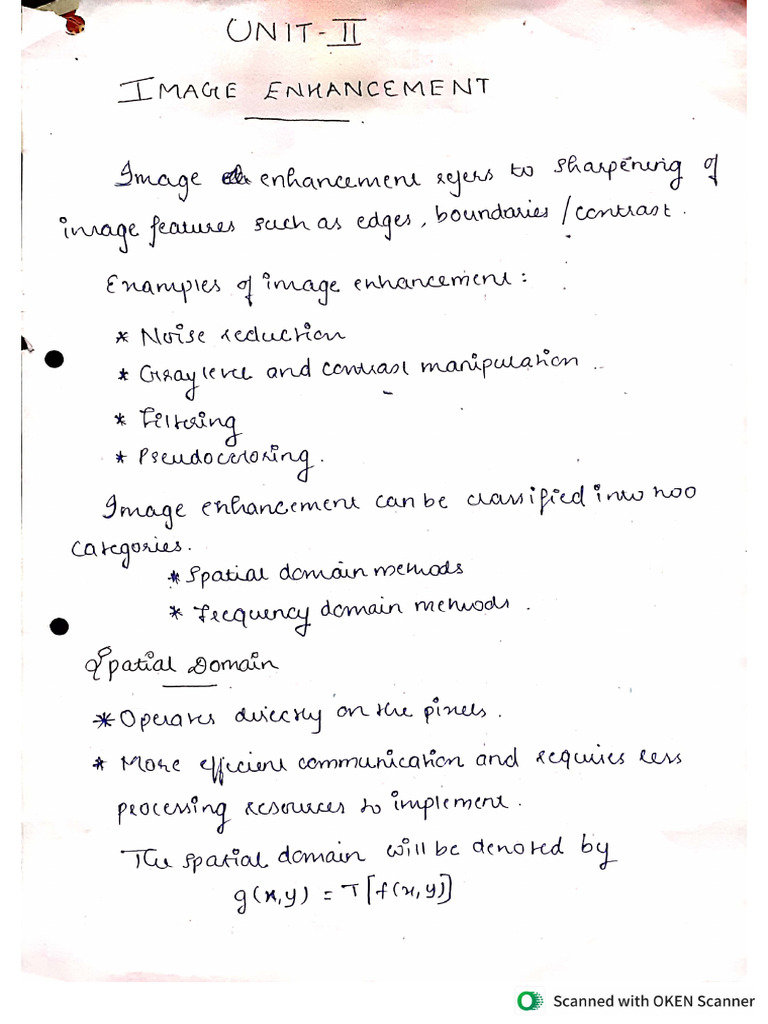 UNIT-II
IMAGE ENHANCEMENT
Image enhancement refers to sharpening of
image features such as edges, boundaries / contrast.
Examples of image enhancement:
* Noise reduction
* Gray level and contrast manipulation
* Filtering
* Pseudocoloring.
Image enhancement can be classified into two
categories.
* Spatial domain methods
* Frequency domain methods.
Spatial Domain
* Operates directly on the pixels.
* More efficient communication and requires less
processing resources to implement.
The spatial domain will be denoted by
g(x,y) = T[f(x,y)]
Scanned with OKEN Scanner